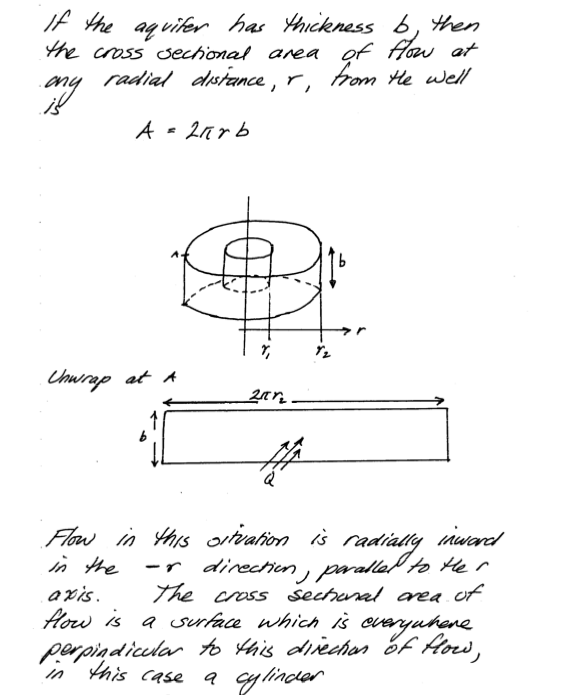 If the aquifer has thickness b, then
the cross sectional area of flow at
any radial distance, r, from the well
is
A = 2πrb
A
b
r
r₁
r₂
Unwrap at A
2πr₂
b
Q
Flow in this situation is radially inward
in the -r direction, parallel to the r
axis. The cross sectional area of
flow is a surface which is everywhere
perpindicular to this direction of flow,
in this case a cylinder